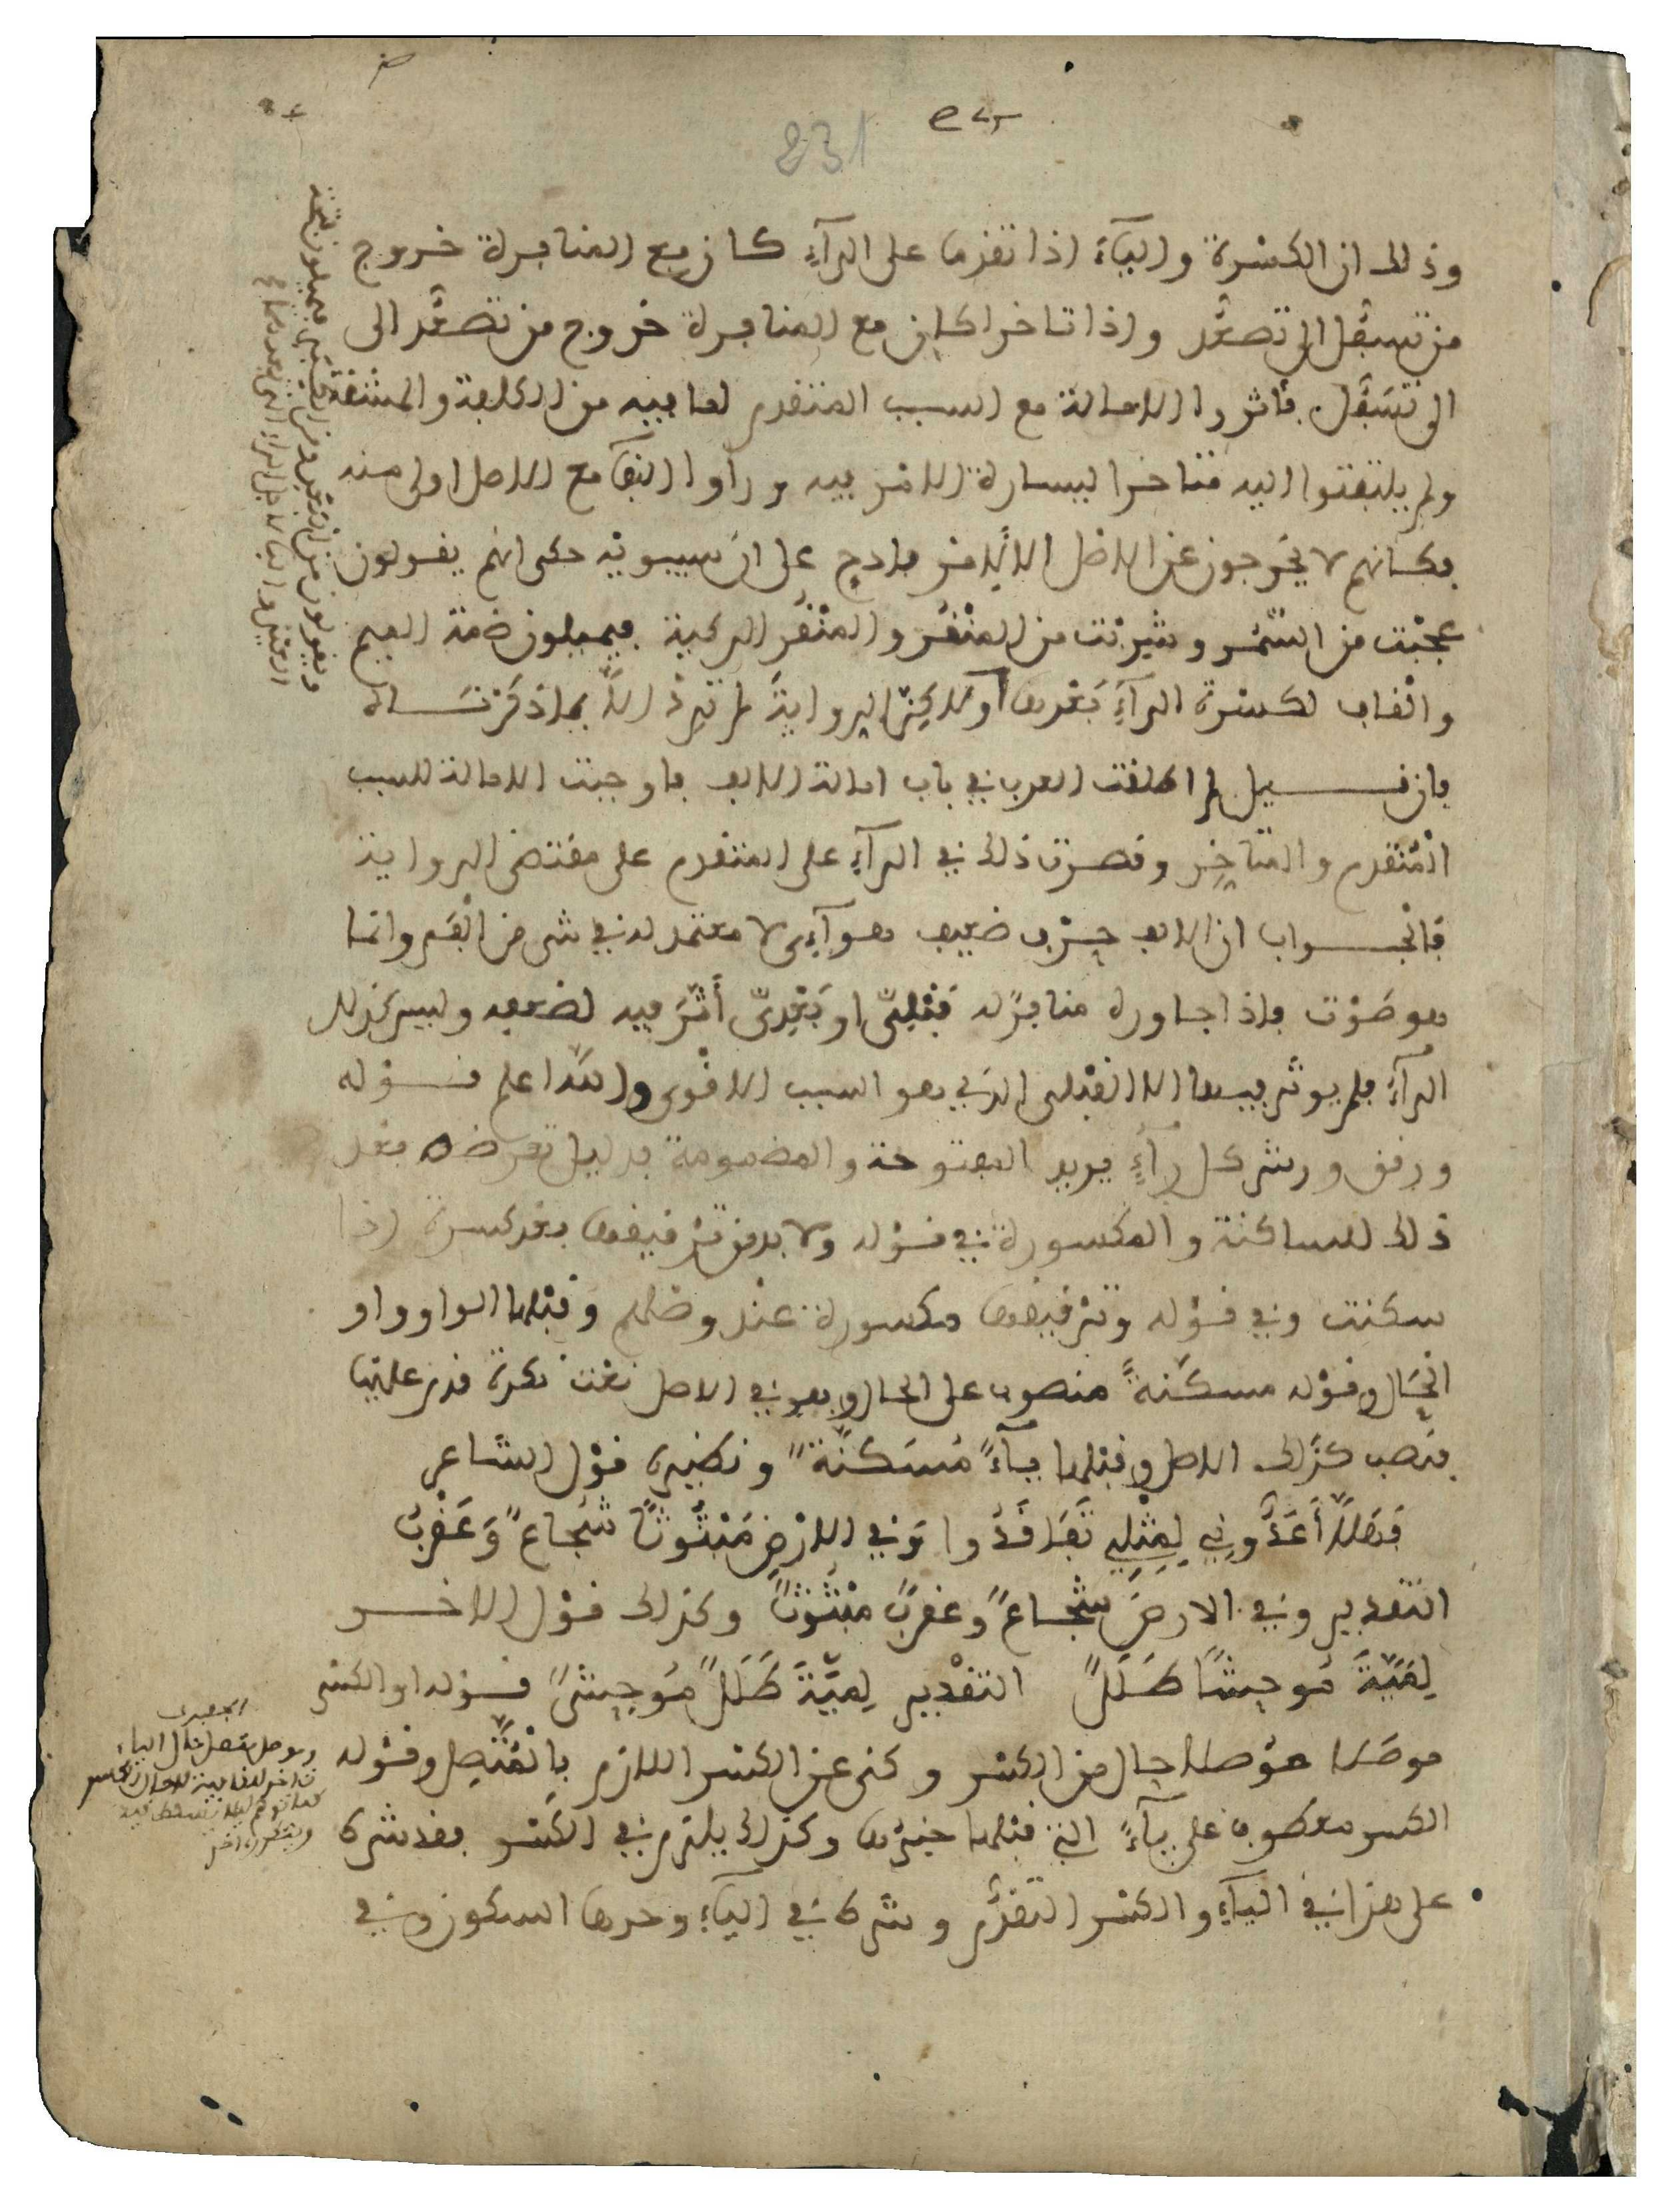 231
وذلك ان الكسرة واليآء اذا تقدما على الرآء كان مع المنافرة خروج
من تسفل الى تصعد واذا تاخرا كان مع المنافرة خروج من تصعد الى
الى تسفل فاثروا الامالة مع السبب المتقدم لما فيه من الكلفة والمشقة
ولم يلتفتوا اليه متاخرا ليسارة الامر فيه ورأوا البقآ مع الاصل اولى منه
فكانهم لا يخرجون عن الاصل الا لامر فادح على ان سيبويه حكى انهم يقولون
عجبت من السمر وشربت من المنقر والمنقر الركية فيميلون ضمة الميم
والقاف لكسرة الرآء بعدها ولاكن الرواية لم ترد الا بما ذكرناه
فان قيل لم اطلقت العرب في باب امالة الالف فاوجبت الامالة للسبب
المتقدم والمتاخر وقصرت ذلك في الرآء على المتقدم على مقتضى الرواية
فالجواب ان الالف حرف ضعيف هوآءى لا معتمد له في شى من الفم وانما
هو صوت فاذا جاوره منافر له قبلى او بعدى أثر فيه لضعفه وليس كذلك
الرآء فلم يوثر فيها الا القبلى الذي هو السبب الاقوى والله اعلم قوله
ورقق ورش كل رآء يريد المفتوحة والمضمومة بدليل تعرضه بعد
ذلك للساكنة والمكسورة في قوله ولا بد من ترقيقها بعد كسرة اذا
سكنت وفي قوله وترقيقها مكسورة عند وصلهم وقبلها الواو واو
الحال وقوله مسكنة منصوب على الحال وهو في الاصل نعت نكرة قدم عليها
فنصب كذلك الاصل وقبلها يآء مسكنة ونظيره قول الشاعر
فهلا أعدوني لمثلي تفاقدوا وفي الارض مبثوثا شجاع وعقرب
التقدير وفي الارض شجاع وعقرب مبثوث وكذلك قول الاخر
لمية موحشا طلل التقدير لمية طلل موحش قوله او الكسر
موصلا موصلا حال من الكسر وكنى عن الكسر اللازم بالمتصل وقوله
الكسر معطوف على يآء التي قبلها خبرها وكذلك يلتزم في الكسر فقد شرط
على هذا في اليآء والكسر التقدم وشرط في اليآء وحدها السكون وفي
الجعبرى